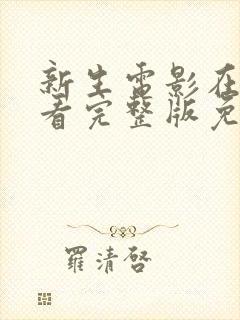 新生電影在
看完整版免
羅清啓